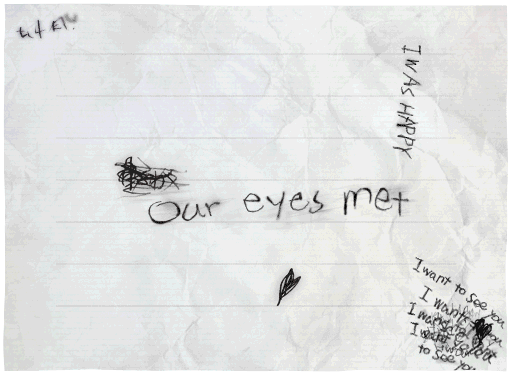 I WAS HAPPY
Our eyes met
I want to see you
I want
I want
I want
to see you